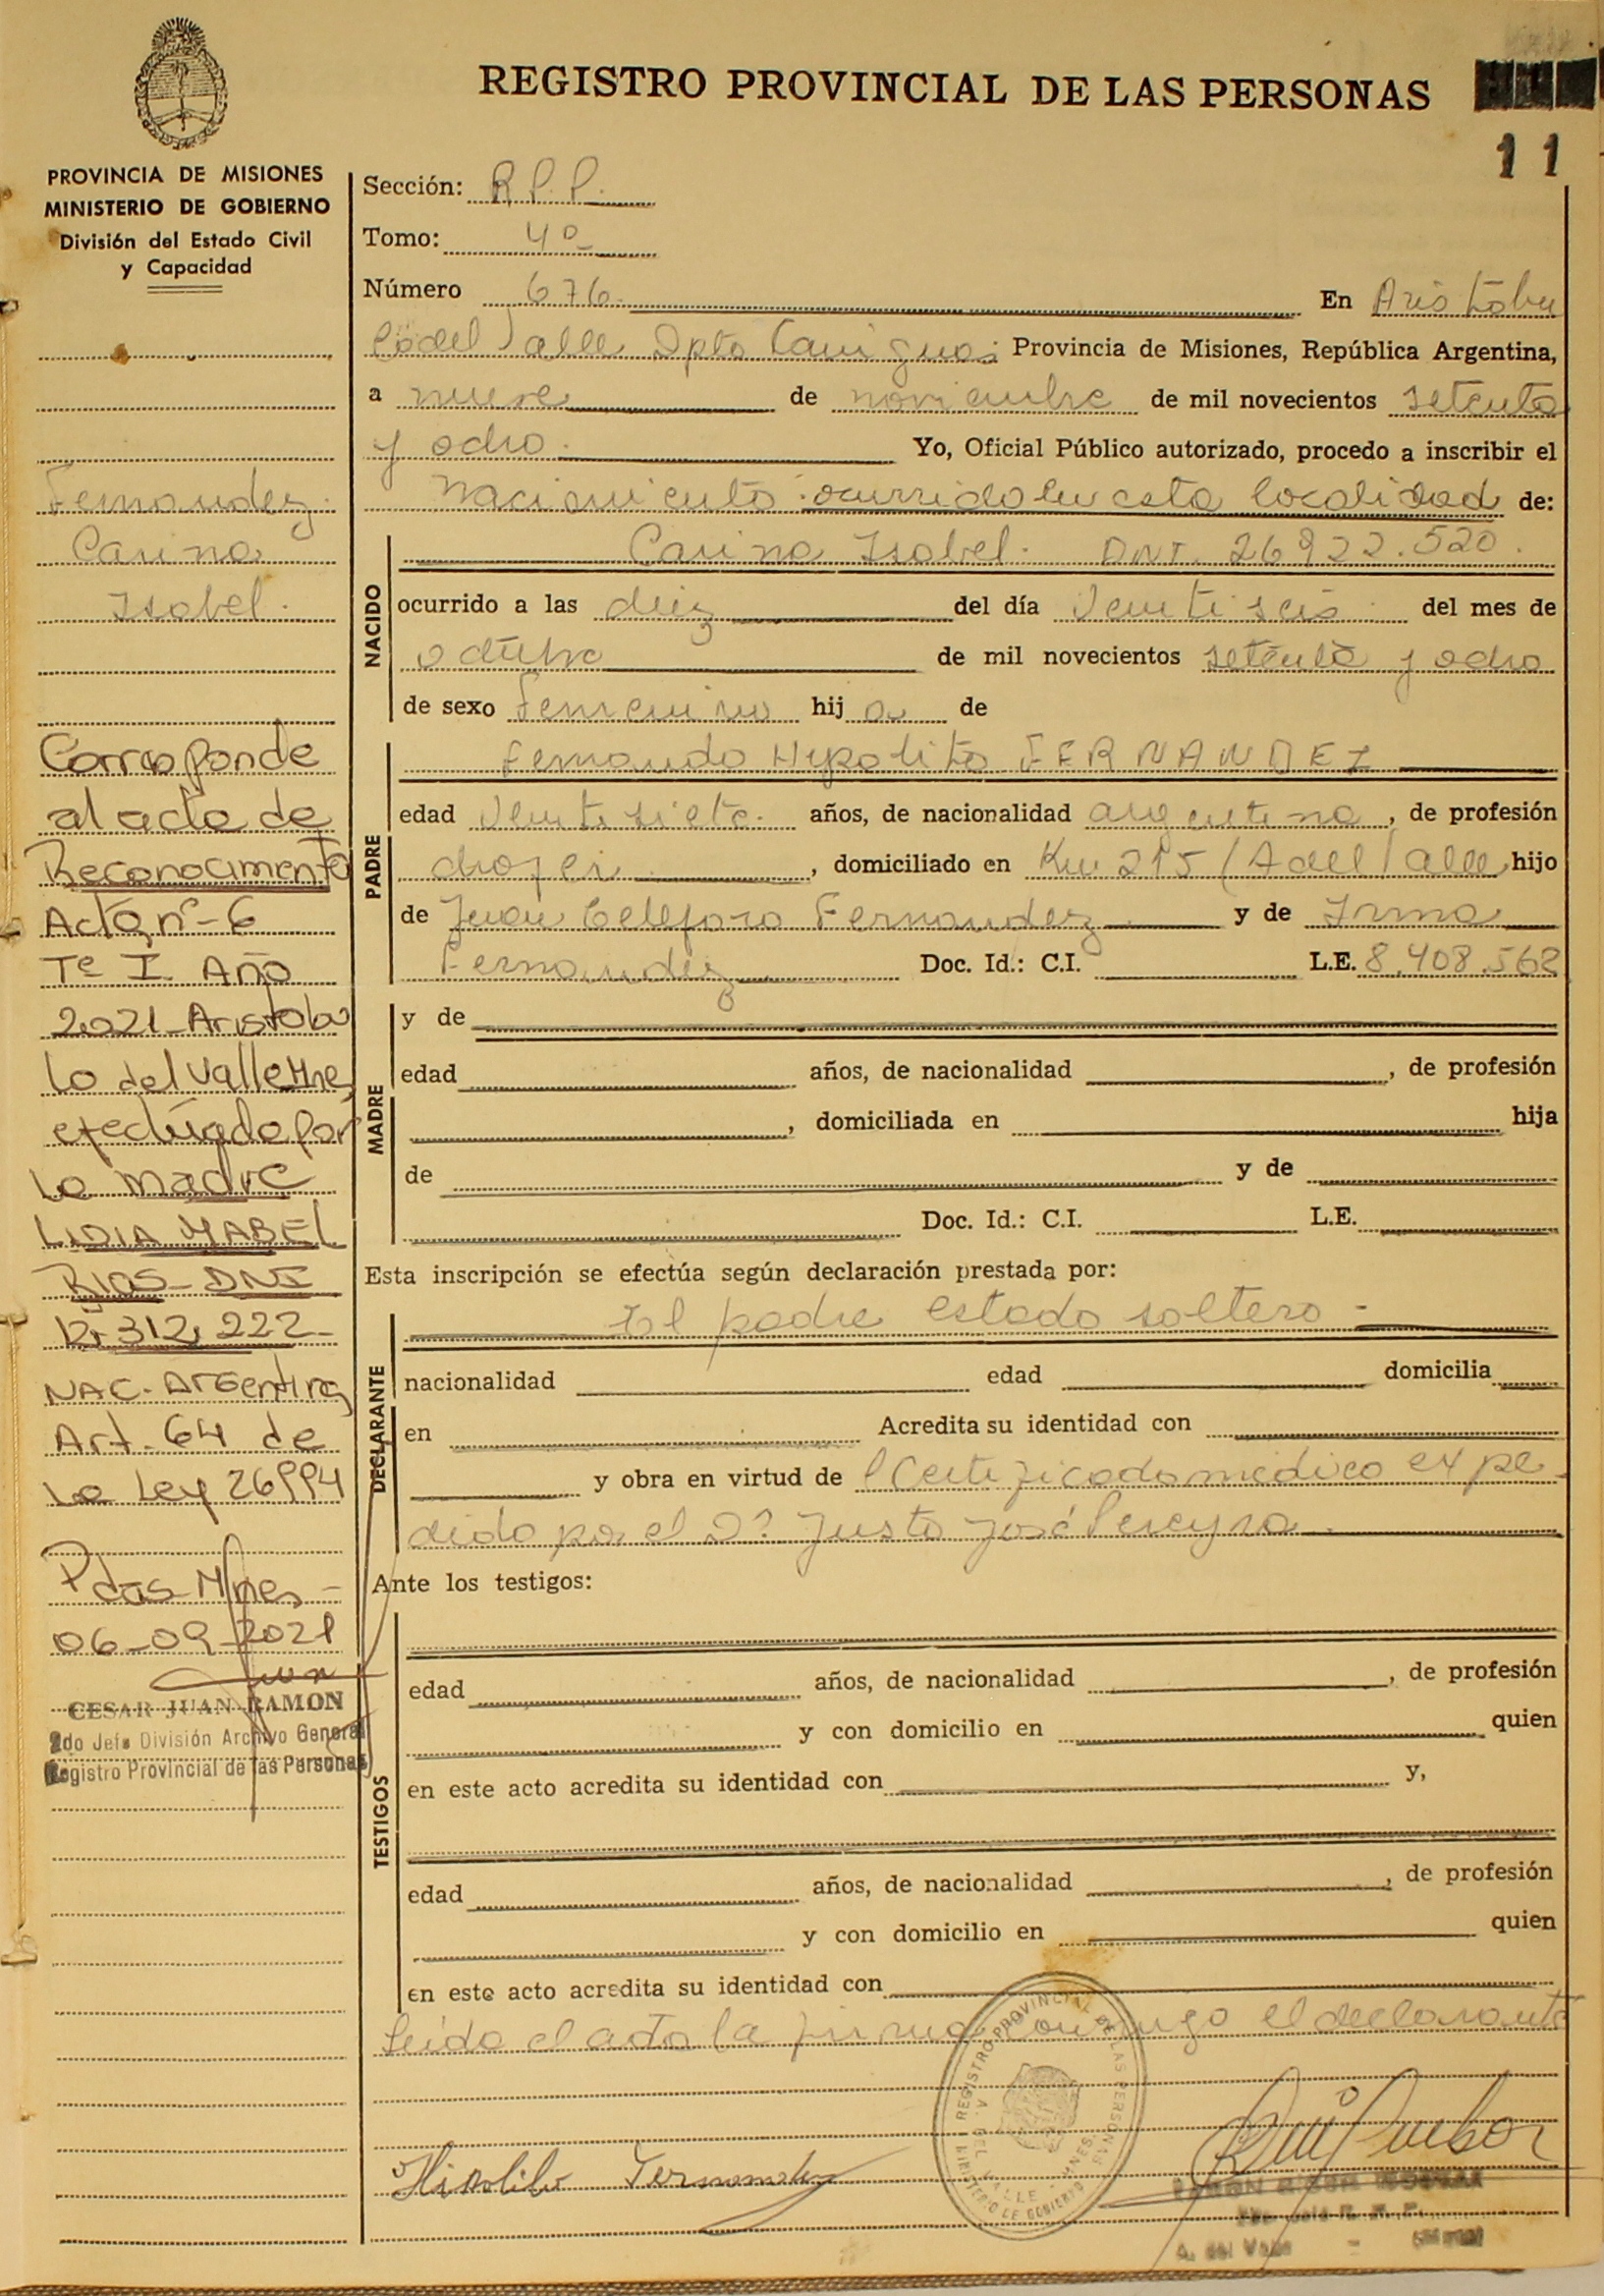 REGISTRO PROVINCIAL DE LAS PERSONAS
11
PROVINCIA DE MISIONES
MINISTERIO DE GOBIERNO
División del Estado Civil
y Capacidad
Fernandez
Carina
Isabel.
Corresponde
al acta de
Reconocimiento
Acta nº-6
Tº I Año
2021-Aristobu
lo del Valle Mnes
efectuado por
la madre
LIDIA MABEL
RIOS-DNI
12.312.222-
NAC. Argentina
Art. 64 de
La Ley 26994
Pdas Mnes-
06-09-2021
CESAR JUAN RAMON
2do Jefe División Archivo General
Registro Provincial de las Personas
Sección: R.P.P.
Tomo: 4º
Número 676. En Aristobu
lo del Valle Dpto Cainguas Provincia de Misiones, República Argentina,
a nueve de noviembre de mil novecientos setenta
y ocho. Yo, Oficial Público autorizado, procedo a inscribir el
nacimiento ocurrido en esta localidad de:
NACIDO
Carina Isabel. DNI. 26922.520.
ocurrido a las diez del día Veintiseis del mes de
octubre de mil novecientos setenta y ocho
de sexo Femenino hij a de
PADRE
Fernando Hypolito FERNANDEZ
edad Veintisiete años, de nacionalidad argentina, de profesión
chofer, domiciliado en Km 215 (A del Valle hijo
de Juan Celeforo Fernandez y de Irma
Fernandez Doc. Id.: C.I. L.E. 8.408.562
MADRE
y de
edad años, de nacionalidad , de profesión
, domiciliada en hija
de y de
Doc. Id.: C.I. L.E.
Esta inscripción se efectúa según declaración prestada por:
DECLARANTE
El padre estado soltero-
nacionalidad edad domicilia
en Acredita su identidad con
y obra en virtud de Certificado medico expe
dido por el Dr. Justo José Pereyra.
Ante los testigos:
TESTIGOS
edad años, de nacionalidad , de profesión
y con domicilio en quien
en este acto acredita su identidad con y,
edad años, de nacionalidad , de profesión
y con domicilio en quien
en este acto acredita su identidad con
Leida el acta la firma conmigo el declarante
REGISTRO PROVINCIAL DE LAS PERSONAS
A. DEL VALLE - MNES.
MINISTERIO DE GOBIERNO
A. del Valle